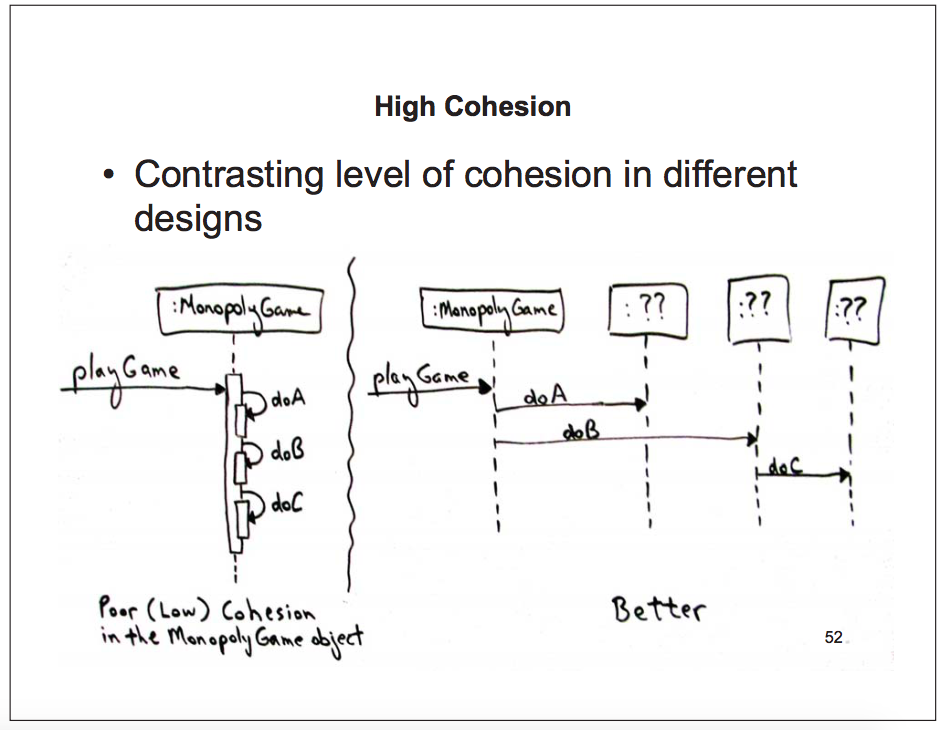 High Cohesion
• Contrasting level of cohesion in different
designs
:MonopolyGame
playGame
doA
doB
doC
Poor (Low) Cohesion
in the MonopolyGame object
:MonopolyGame
: ??
:??
:??
playGame
doA
doB
doC
Better
52